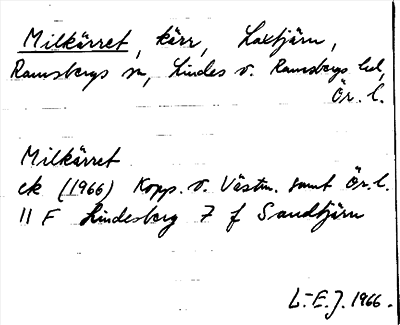 Milkärret, kärr, Laxtjärn,
Ramsbergs sn, Lindes o. Ramsbergs hd,
Ör. l.
Milkärret
ek (1966) Kopp. o. Västm. samt Ör. l.
11 F Lindesberg 7 f Sandtjärn
L-E.J. 1966.